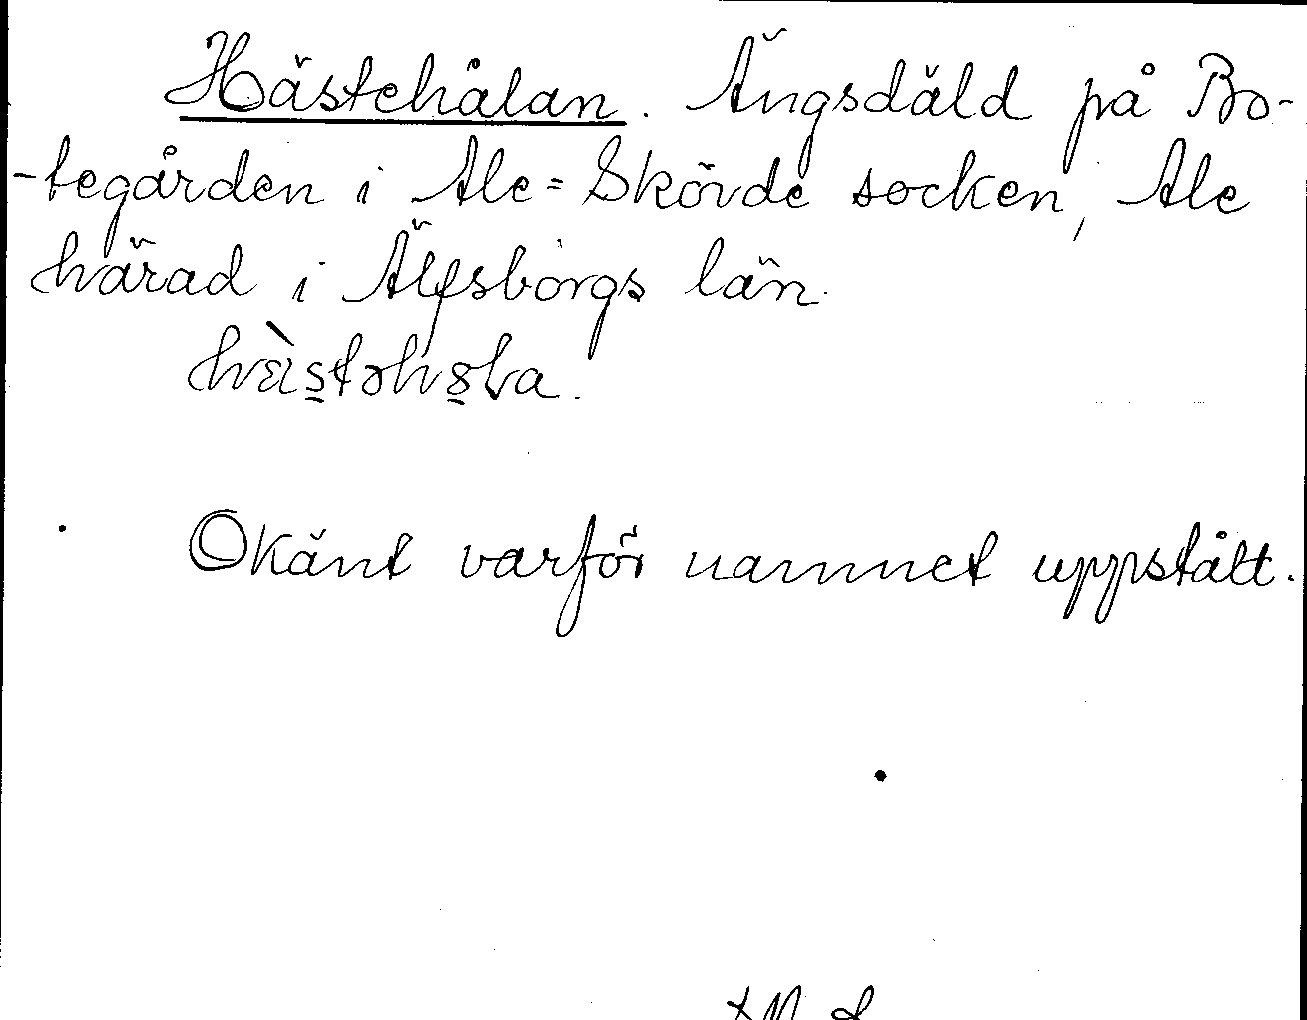 Hästehålan. Ängsdäld på Bo-
-tegården i Ale=Skövde socken, Ale
härad i Älfsborgs län.
Okänt varför namnet uppstått.